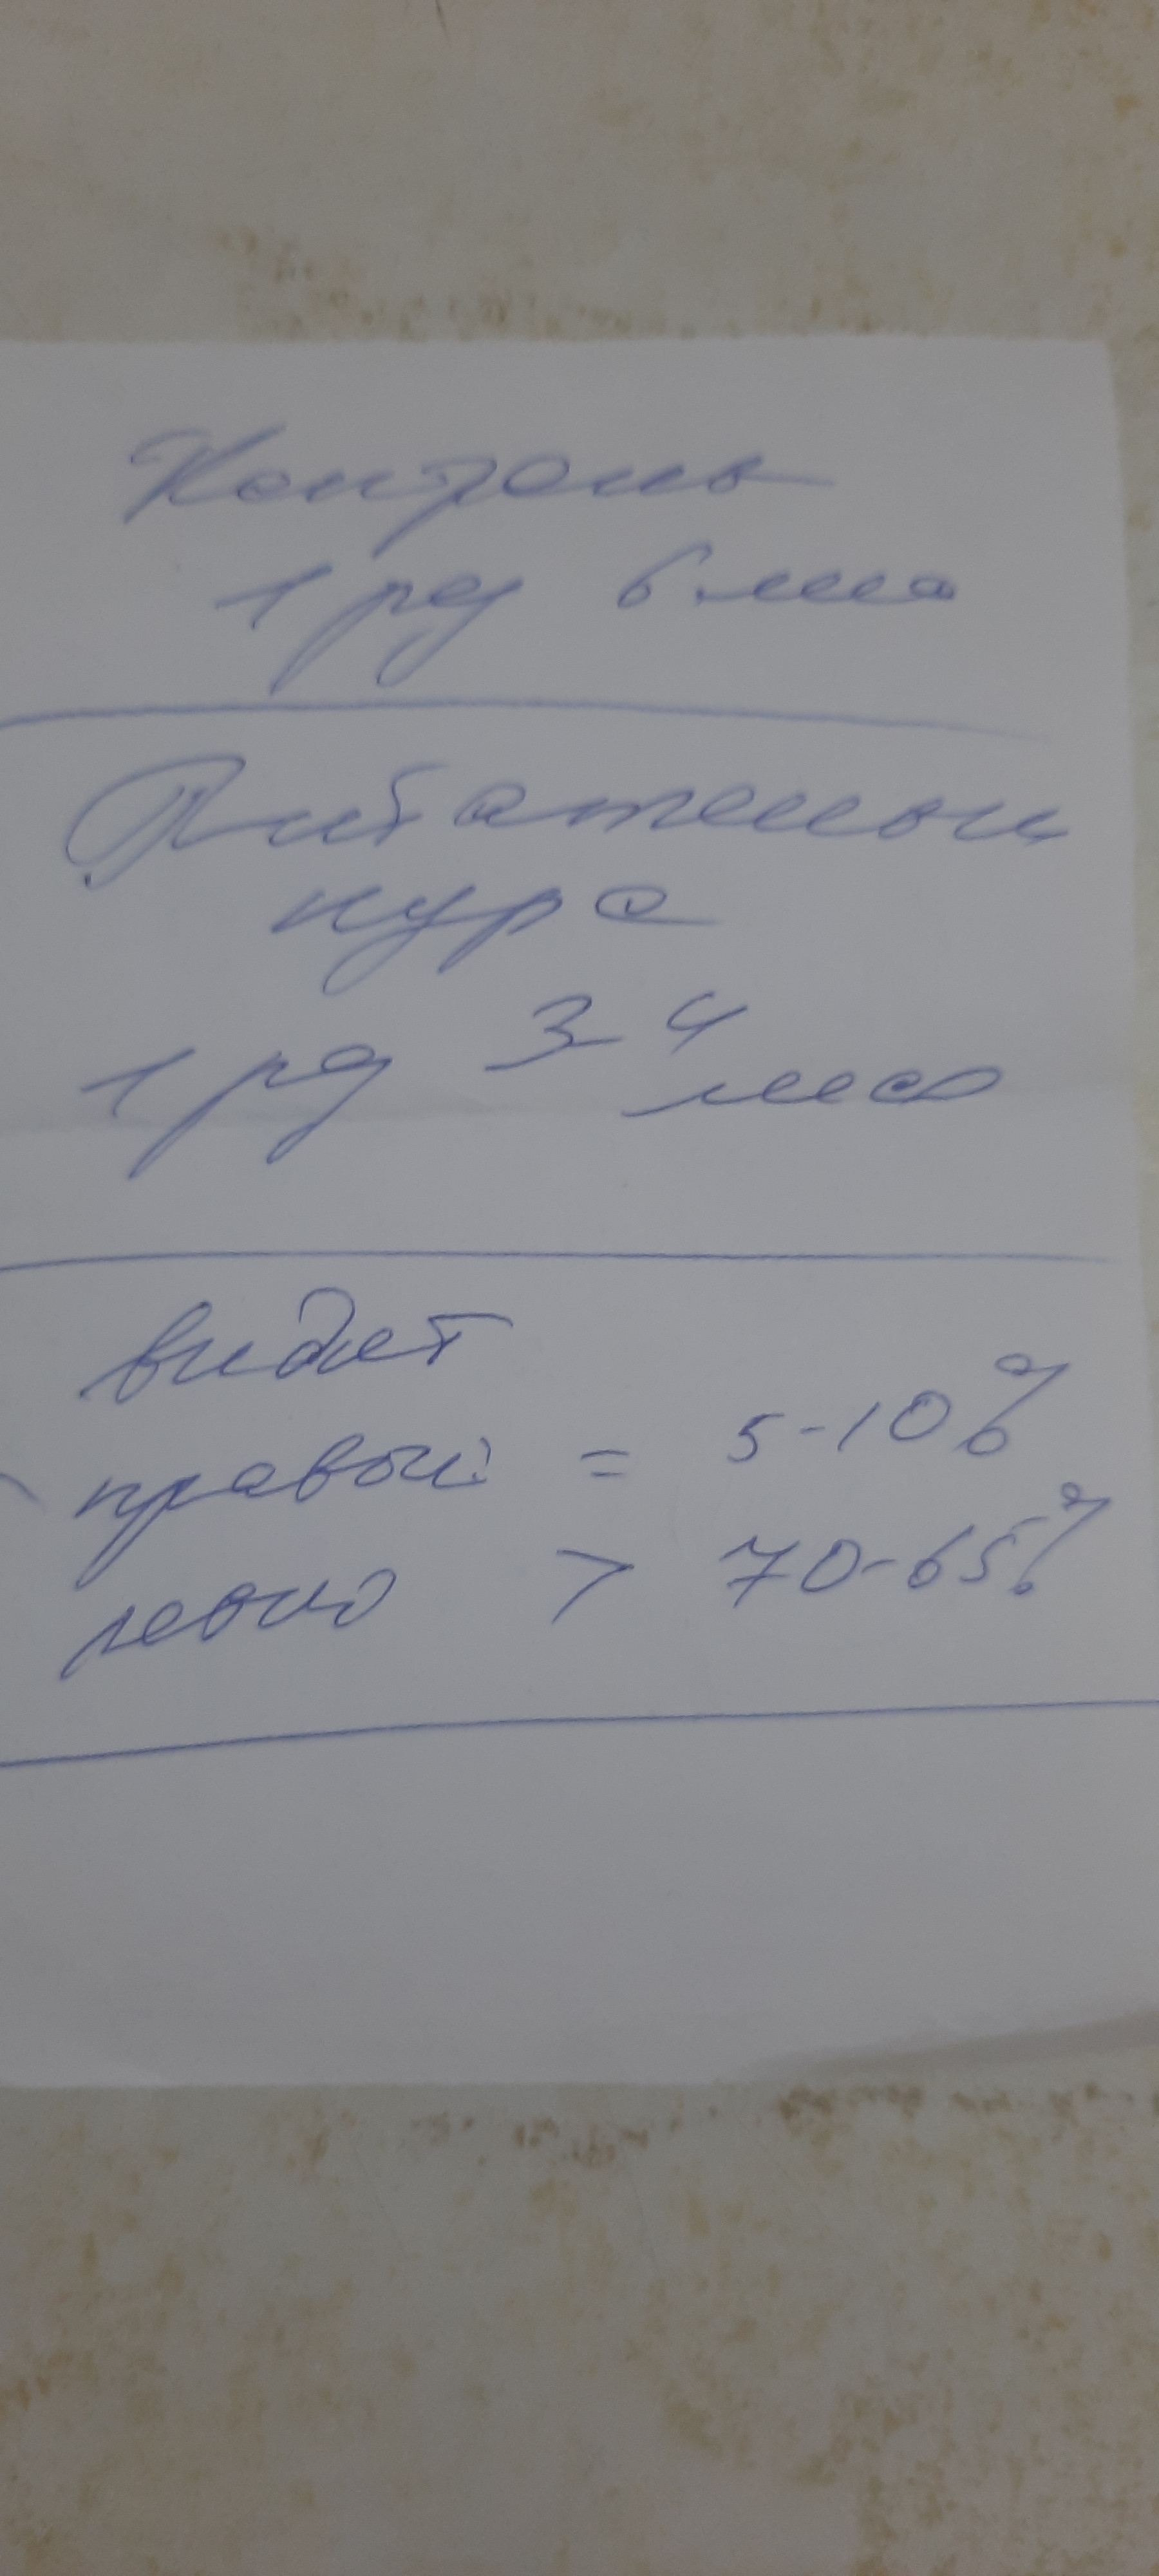 Контроль
1 раз 6 мес
Питательный
курс
1 раз 3-4
мес
видит
правый = 5-10%
левый > 70-65%